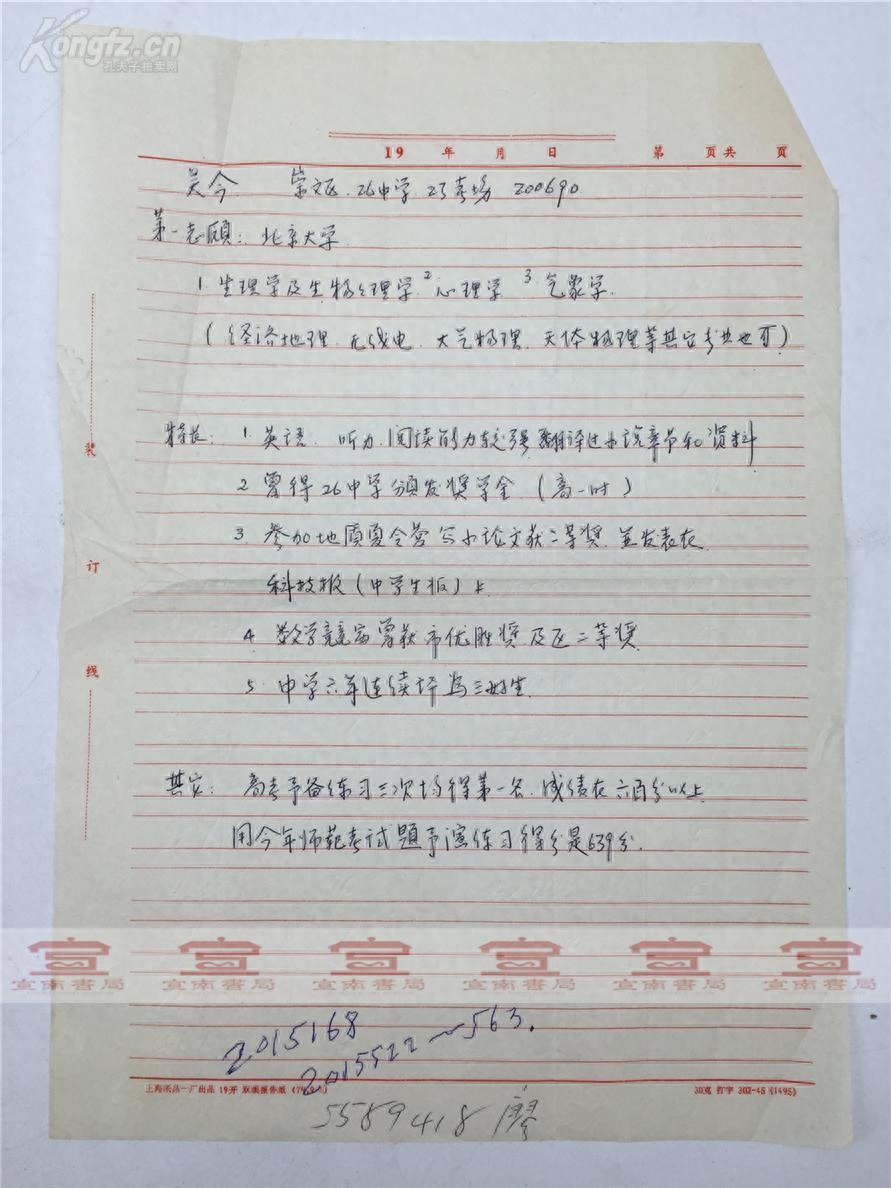 Kongfz.cn
孔夫子拍卖网
19 年 月 日 第 页共 页
吴今 崇文区.26中学.23考场 200690
第一志愿：北京大学
1.生理学及生物物理学 2心理学 3.气象学.
(经济地理.无线电.大气物理.天体物理等其它专业也可)
特长：1.英语.听力.阅读能力较强 翻译过小说章节和资料
2 曾得26中学颁发奖学金.(高一时)
3.参加地质夏令营写小论文获二等奖.並发表在
科技报(中学生版)上.
4 数学竞赛曾获市优胜奖.及区二等奖
5.中学六年连续评为三好生.
其它：高考予备练习三次均得第一名.成绩在六百分以上
用今年师范考试题予演练习得分是639分.
装
订
线
宣南書局 宣南書局 宣南書局 宣南書局 宣南書局 宣南書局
2015168
2015522～563.
上海纸品一厂出品 19开 双线报告纸
30克 打字 302-45 (1495)
5589418 廖